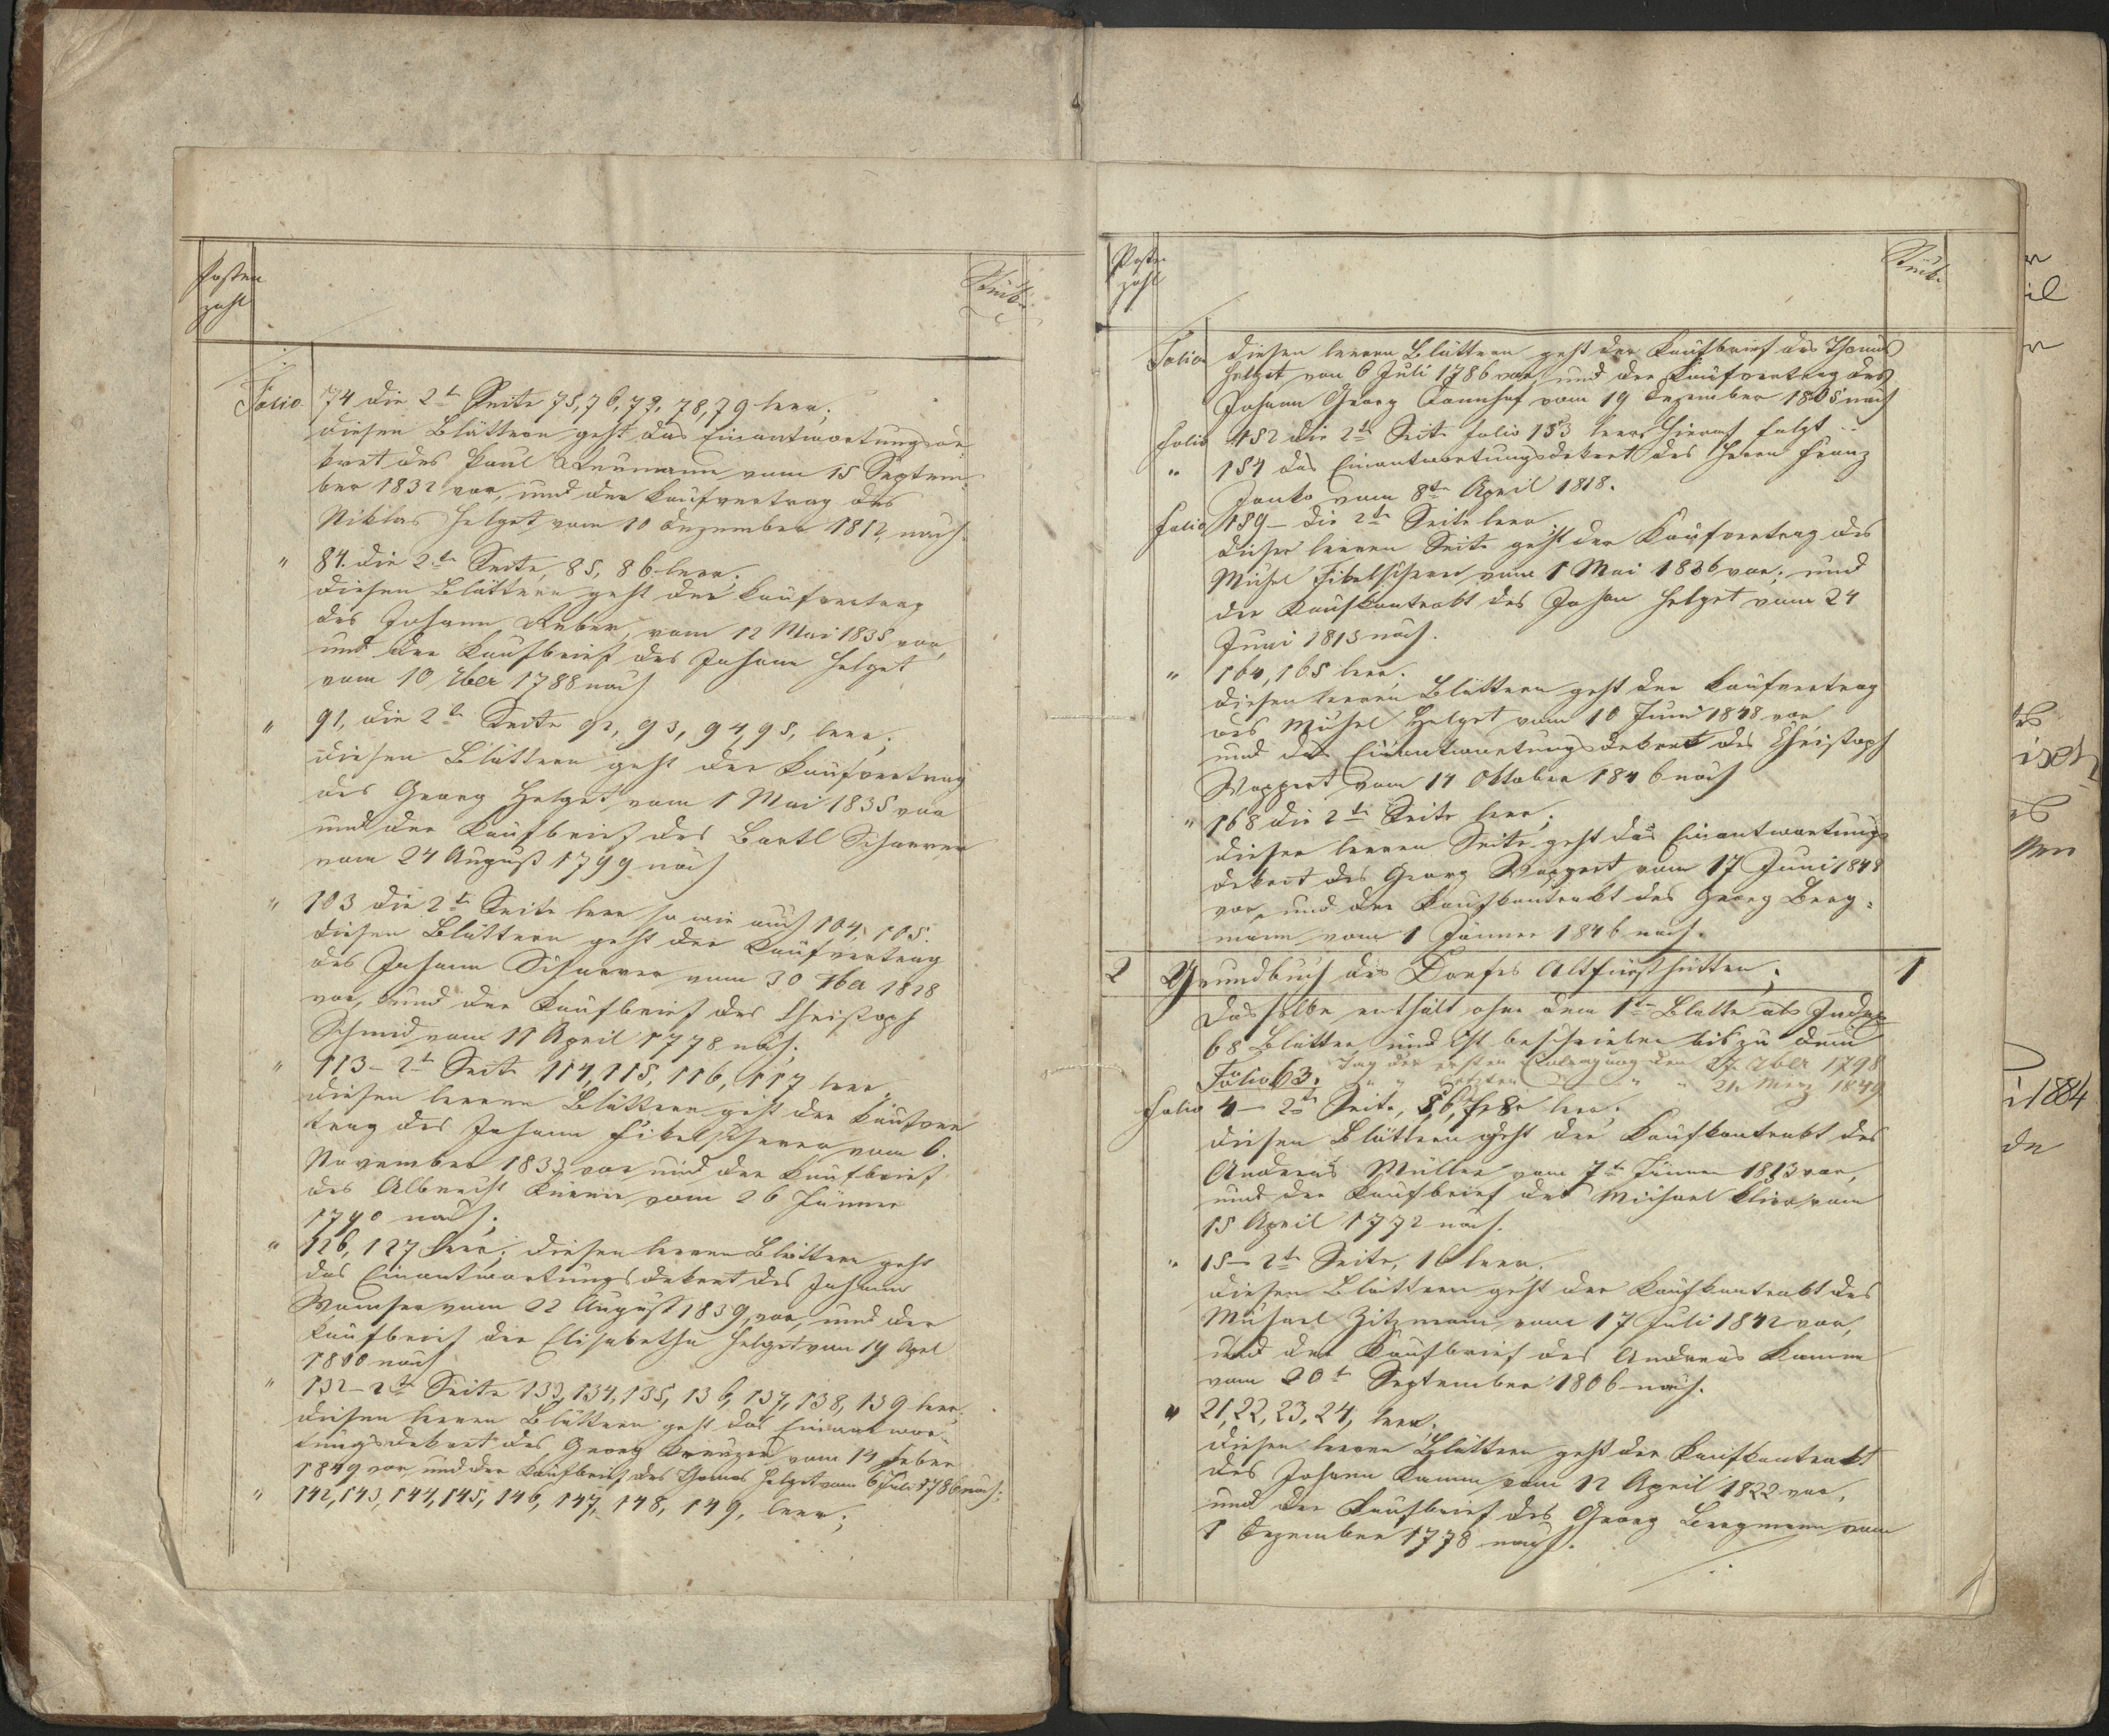 Posten
zahl
Stück
Folio 74 die 2te Seite 75, 76, 77, 78, 79 leer;
diesen Blättern geht das Einantwortungsde-
kret des Paul Neumann vom 15 Septem-
ber 1832 vor, und der Kaufvertrag des
Niklas Helget vom 10 Dezember 1812 nach.
" 84. die 2te Seite, 85, 86 leer;
diesen Blättern geht der Kaufvertrag
des Johann Reber, vom 12 Mai 1835 vor,
und der Kaufbrief des Johann Helget
vom 10 Xber 1788 nach
" 91, die 2te Seite 92, 93, 94, 95, leer;
diesen Blättern geht der Kaufvertrag
des Georg Helget vom 1 Mai 1835 vor
und der Kaufbrief des Bartl Scharrer
vom 24 August 1799 nach
" 103 die 2te Seite leer so wie auch 104, 105.
diesen Blättern geht der Kaufvertrag
des Johann Scharrer vom 30 7ber 1828
vor, und der Kaufbrief des Christoph
Schmid vom 11 April 1778 nach;
" 113 – 2te Seite 114, 115, 116, 117 leer,
diesen leeren Blättern geht der Kaufver
trag des Johann Fibelscherer vom 6.
November 1833 vor und der Kaufbrief
des Albrecht vom 26 Jänner
1790 nach;
" 126, 127 leer; diesen leeren Blättern geht
das Einantwortungsdekret des Johann
Wamser vom 22 August 1839, vor, und der
Kaufbrief der Elisabetha Helget vom 19 April
1800 nach
" 132 – 2te Seite 133, 134, 135, 136, 137, 138, 139 leer;
diesen leeren Blättern geht das Einantwor-
tungsdekret des Georg vom 14 Feber
1849 vor und der Kaufbrief des Thomas Helget vom 6 Juli 1786 nach;
" 142, 143, 144, 145, 146, 147, 148, 149, leer;
Posten
zahl
Stück
Folio diesen leeren Blättern geht der Kaufbrief des Thomas
Helget vom 6 Juli 1786 vor, und der Kaufvertrag des
Johann Georg vom 19 Dezember 1805 nach
Folio 152 die 2te Seite folio 153 leer, hierauf folgt
" 154 das Einantwortungsdekret des Herrn Franz
Janko vom 8ten April 1818.
Folio 159 – die 2te Seite leer
dieser leeren Seite geht der Kaufvertrag des
Michel Fibelscherer vom 1 Mai 1836 vor; und
der Kaufkontrakt des Johan Helget vom 24
Juni 1813 nach.
" 164, 165 leer;
diesen leeren Blättern geht der Kaufvertrag
des Michel Helget vom 10 Juni 1848 vor
und das Einantwortungsdekret des Christoph
Wappert vom 14 Oktober 1846 nach
" 168 die 2te Seite leer;
dieser leeren Seite geht das Einantwortungs
dekret des Georg Wappert vom 17 Juni 1848
vor, und der Kaufkontrakt des Georg Berg-
mann vom 1 Jänner 1846 nach.
2 Grundbuch des Dorfes Altfürsthütten; 1
Dasselbe enthält ohne dem 1ten Blatte als Index
68 Blätter und ist beschrieben bis zu dem
Folio 63. Tag der ersten Eintragung den 27. Xber 1798
" " letzten " " 21. März 1849
Folio 4 – 2te Seite, 5, 6, 7, 8 leer;
diesen Blättern geht der Kaufkontrakt des
Andreas Müller vom 7ten Jänner 1813 vor,
und der Kaufbrief des Michael vom
15 April 1772 nach.
" 15 – 2te Seite, 16 leer,
diesen Blättern geht der Kaufkontrakt des
Michael Zitzmann vom 17 Juli 1842 vor,
und der Kaufbrief des Andreas Kamm
vom 20ten September 1806 nach.
" 21, 22, 23, 24, leer;
diesen leeren Blättern geht der Kaufkontrakt
des Johann Kamm vom 12 April 1822 vor,
und der Kaufbrief des Georg Bergmann vom
1 Dezember 1778 nach.
1884